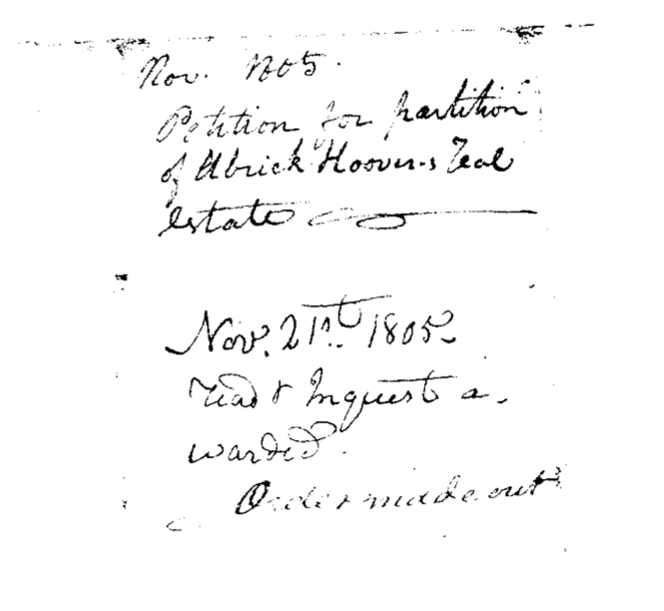 Nov. 1805.
Petition for partition
of Ulrick Hoover's real
estate
Nov. 21st. 1805.
read & Inquest a-
warded.
Order made out